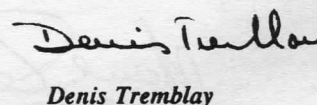 Denis Tremblay
Denis Tremblay